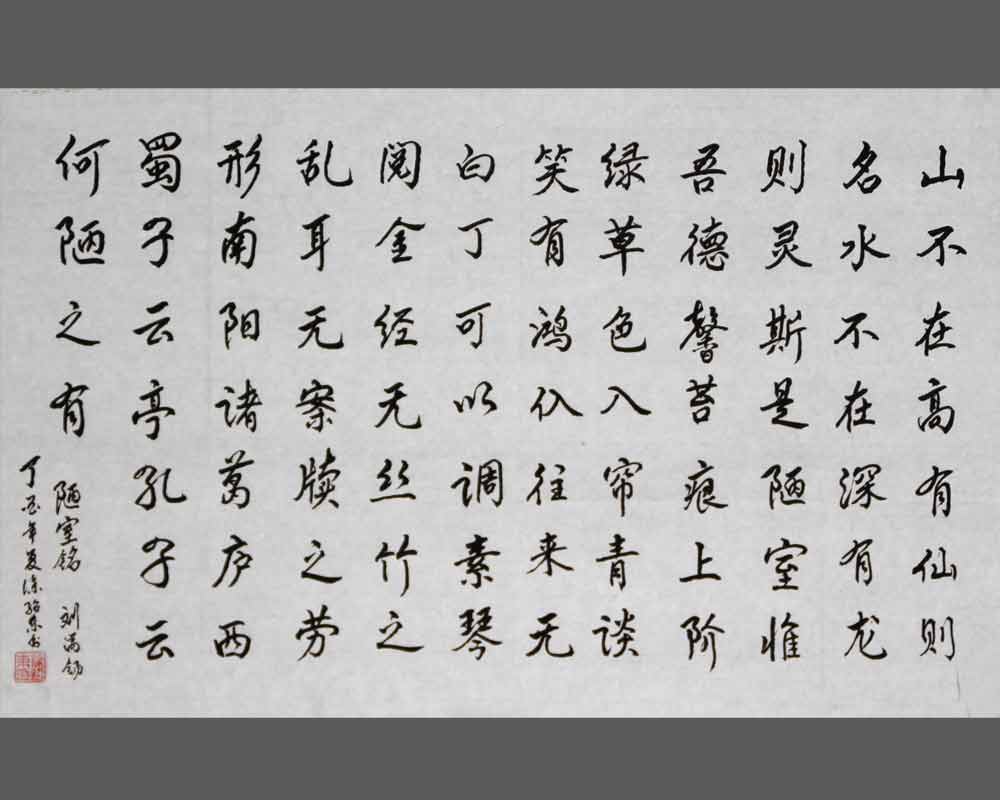 山不在高有仙则
名水不在深有龙
则灵斯是陋室惟
吾德馨苔痕上阶
绿草色入帘青谈
笑有鸿仈往来无
白丁可以调素琴
阅金经无丝竹之
乱耳无案牍之劳
形南阳诸葛庐西
蜀子云亭孔子云
何陋之有
陋室铭 刘禹锡
丁酉年夏